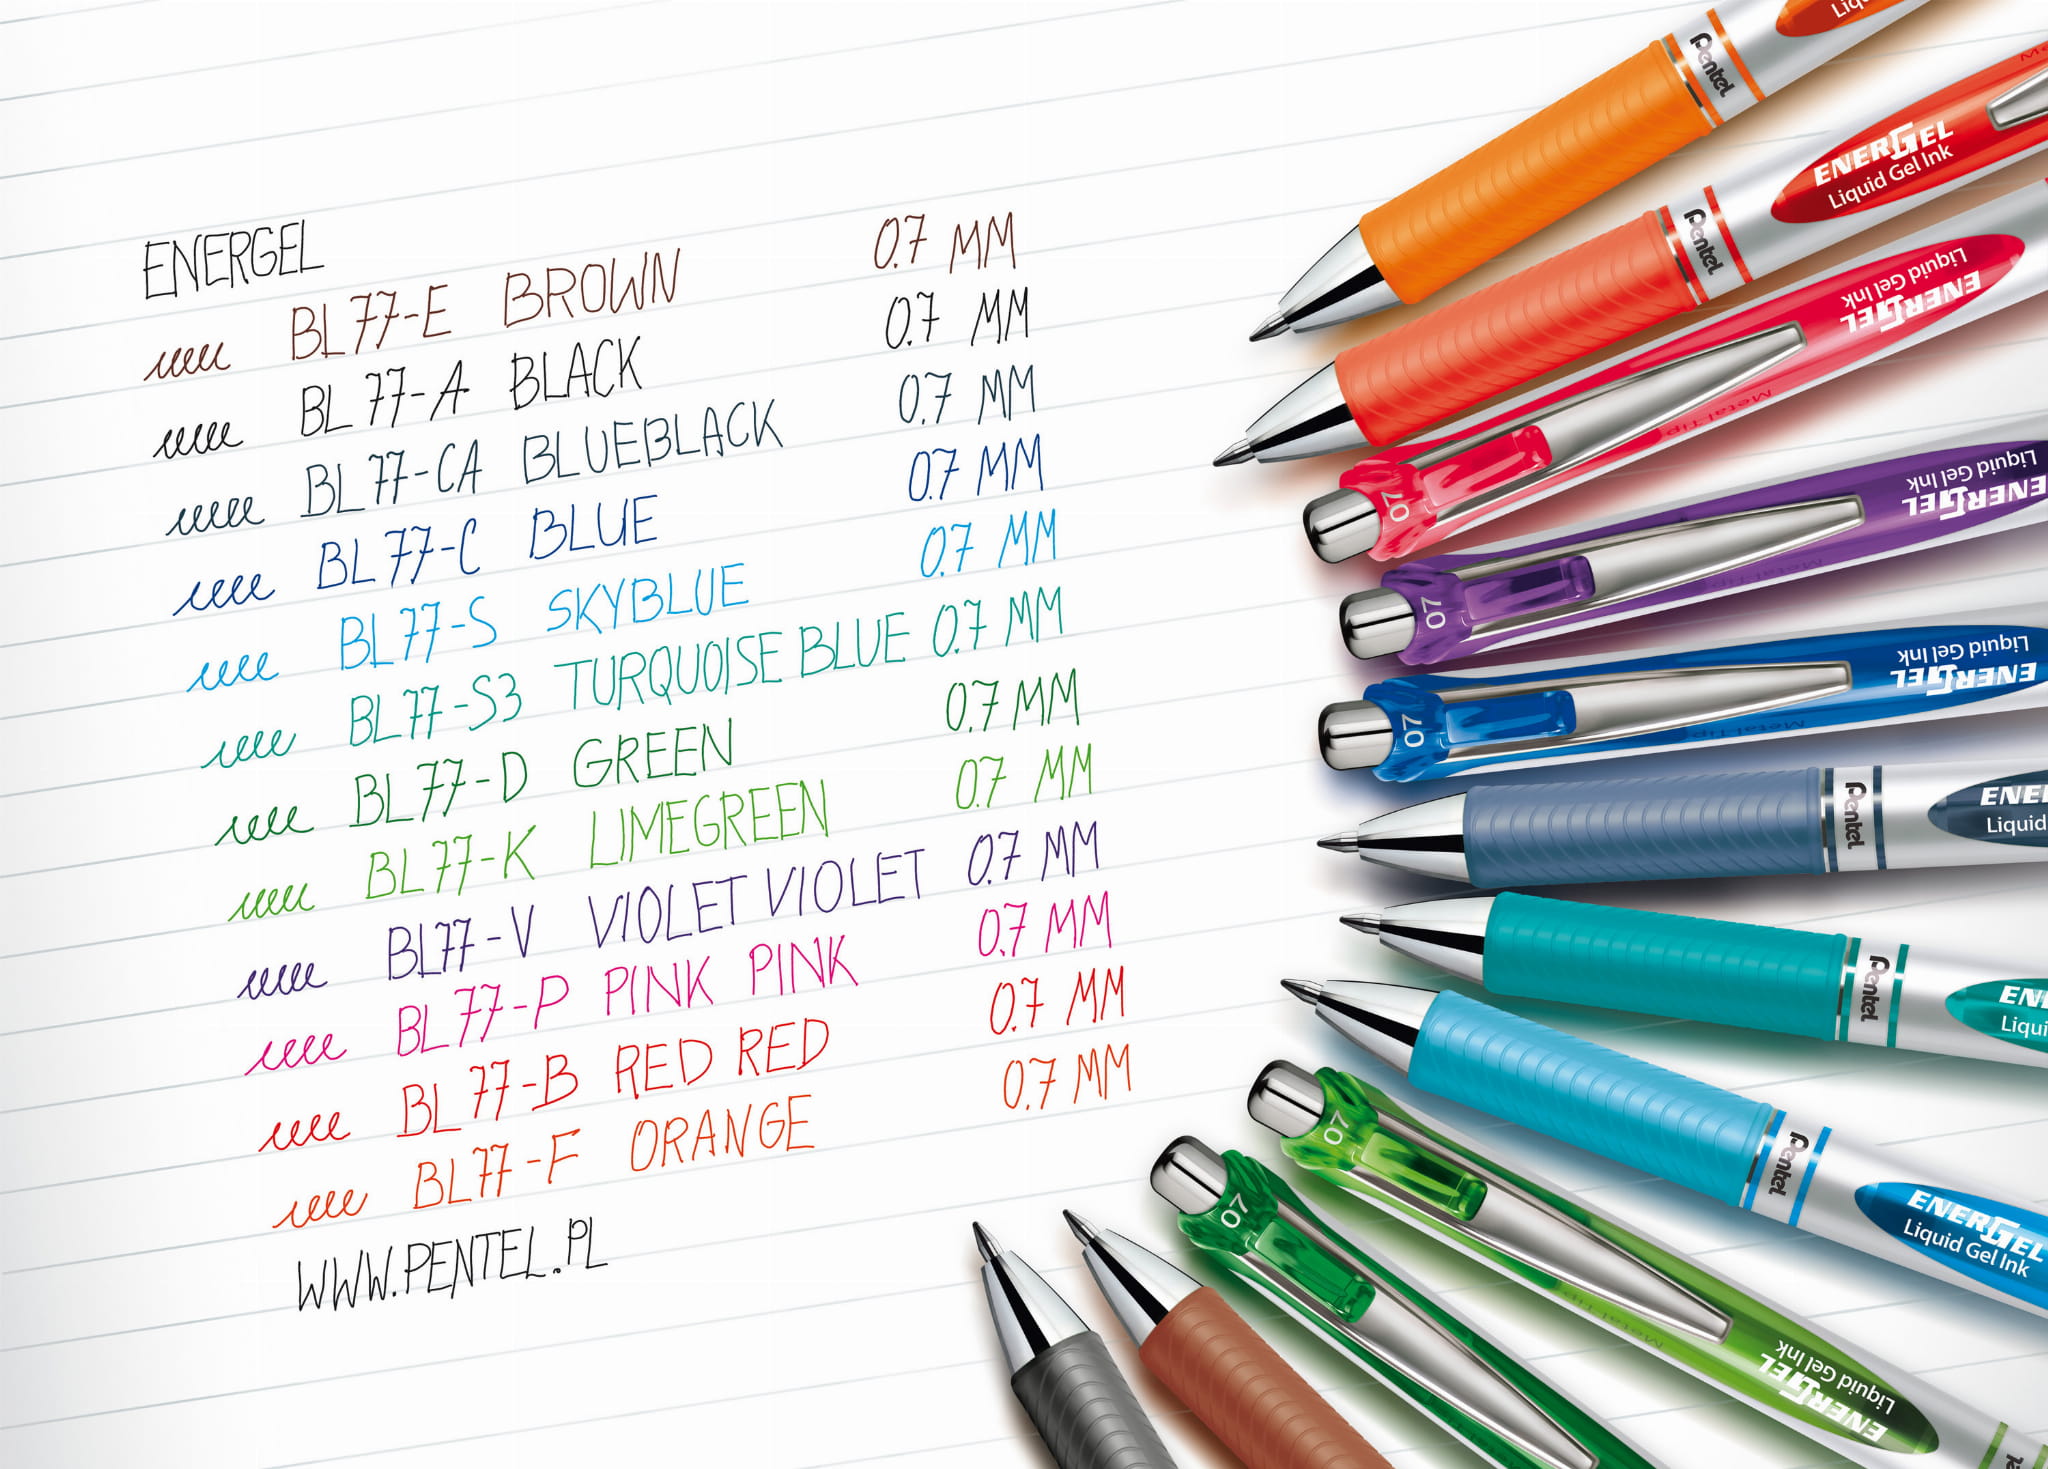 ENERGEL
BL77-E BROWN 0.7 MM
BL77-A BLACK 0.7 MM
BL77-CA BLUEBLACK 0.7 MM
BL77-C BLUE 0.7 MM
BL77-S SKYBLUE 0.7 MM
BL77-S3 TURQUOISE BLUE 0.7 MM
BL77-D GREEN 0.7 MM
BL77-K LIMEGREEN 0.7 MM
BL77-V VIOLET VIOLET 0.7 MM
BL77-P PINK PINK 0.7 MM
BL77-B RED RED 0.7 MM
BL77-F ORANGE 0.7 MM
WWW.PENTEL.PL
Pentel
Pentel
ENERGEL
Liquid Gel Ink
07
Metal Tip
ENERGEL
Liquid Gel Ink
07
Metal Tip
ENERGEL
Liquid Gel Ink
07
Metal Tip
ENERGEL
Liquid Gel Ink
Pentel
Liquid
Pentel
Pentel
ENERGEL
Liquid Gel Ink
07
Metal Tip
ENERGEL
Liquid Gel Ink
07